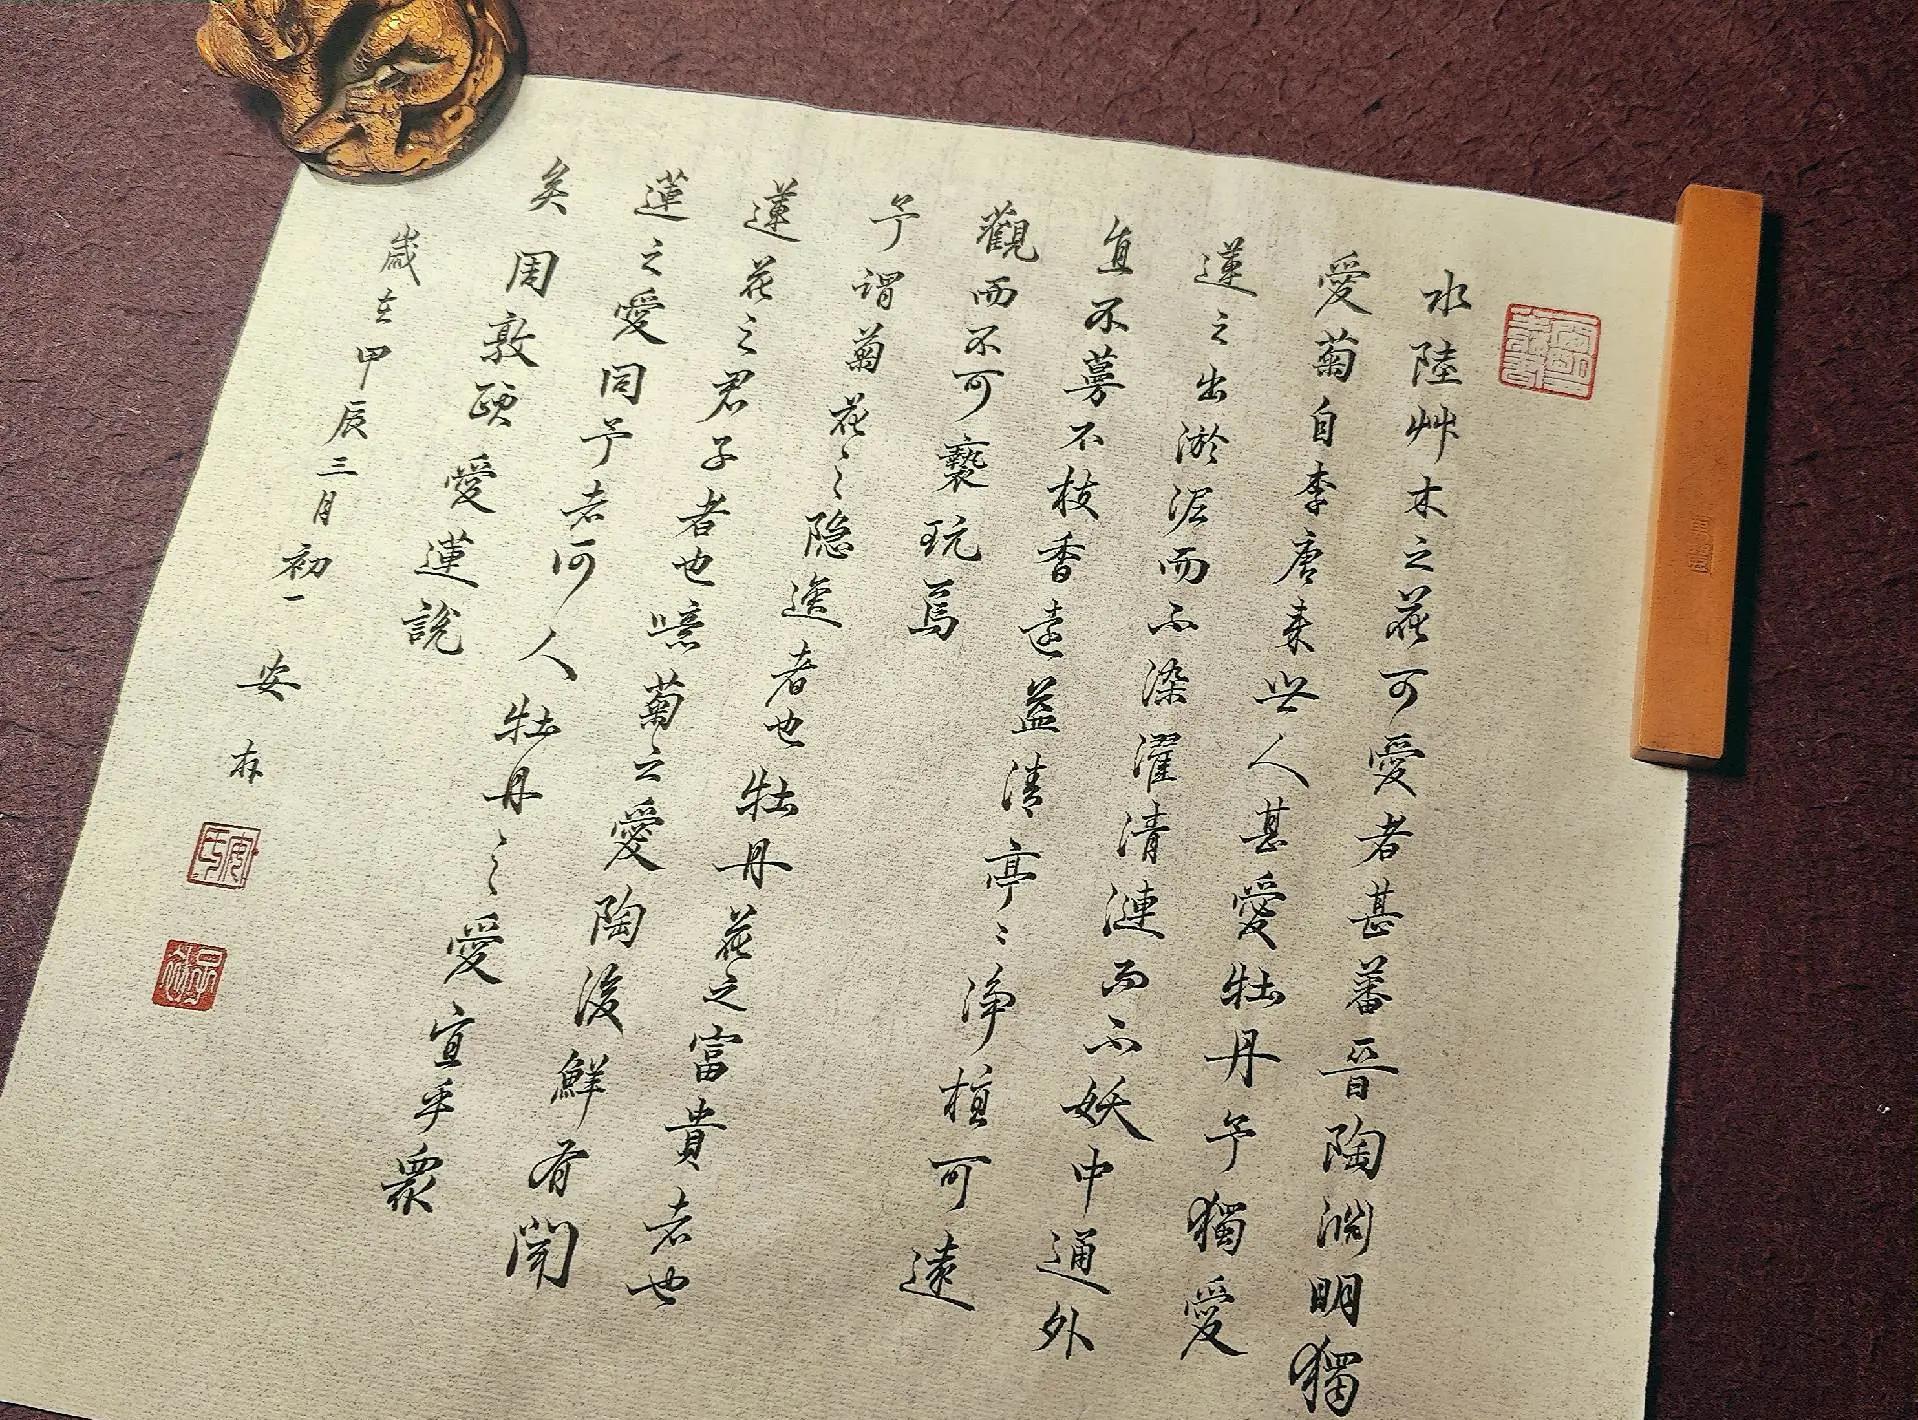 水陸艸木之花可愛者甚蕃晉陶淵明獨
愛菊自李唐来世人甚愛牡丹予獨愛
蓮之出淤泥而不染濯清漣而不妖中通外
直不蔓不枝香遠益清亭〻淨植可遠
觀而不可褻玩焉
予謂菊花之隐逸者也牡丹花之富貴者也
蓮花之君子者也噫菊之愛陶後鮮有聞
蓮之愛同予者何人牡丹之愛宜乎衆
矣 周敦頤愛蓮說
歲在甲辰三月初一 安存